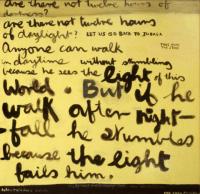 are there not twelve hours of
darkness?
are there not twelve hours
of daylight? LET US GO BACK TO JUDAEA
Anyone can walk
in daytime without stumbling
because he sees the light of this
World. But if he
walk after night-
fall he stumbles
because the light
fails him.